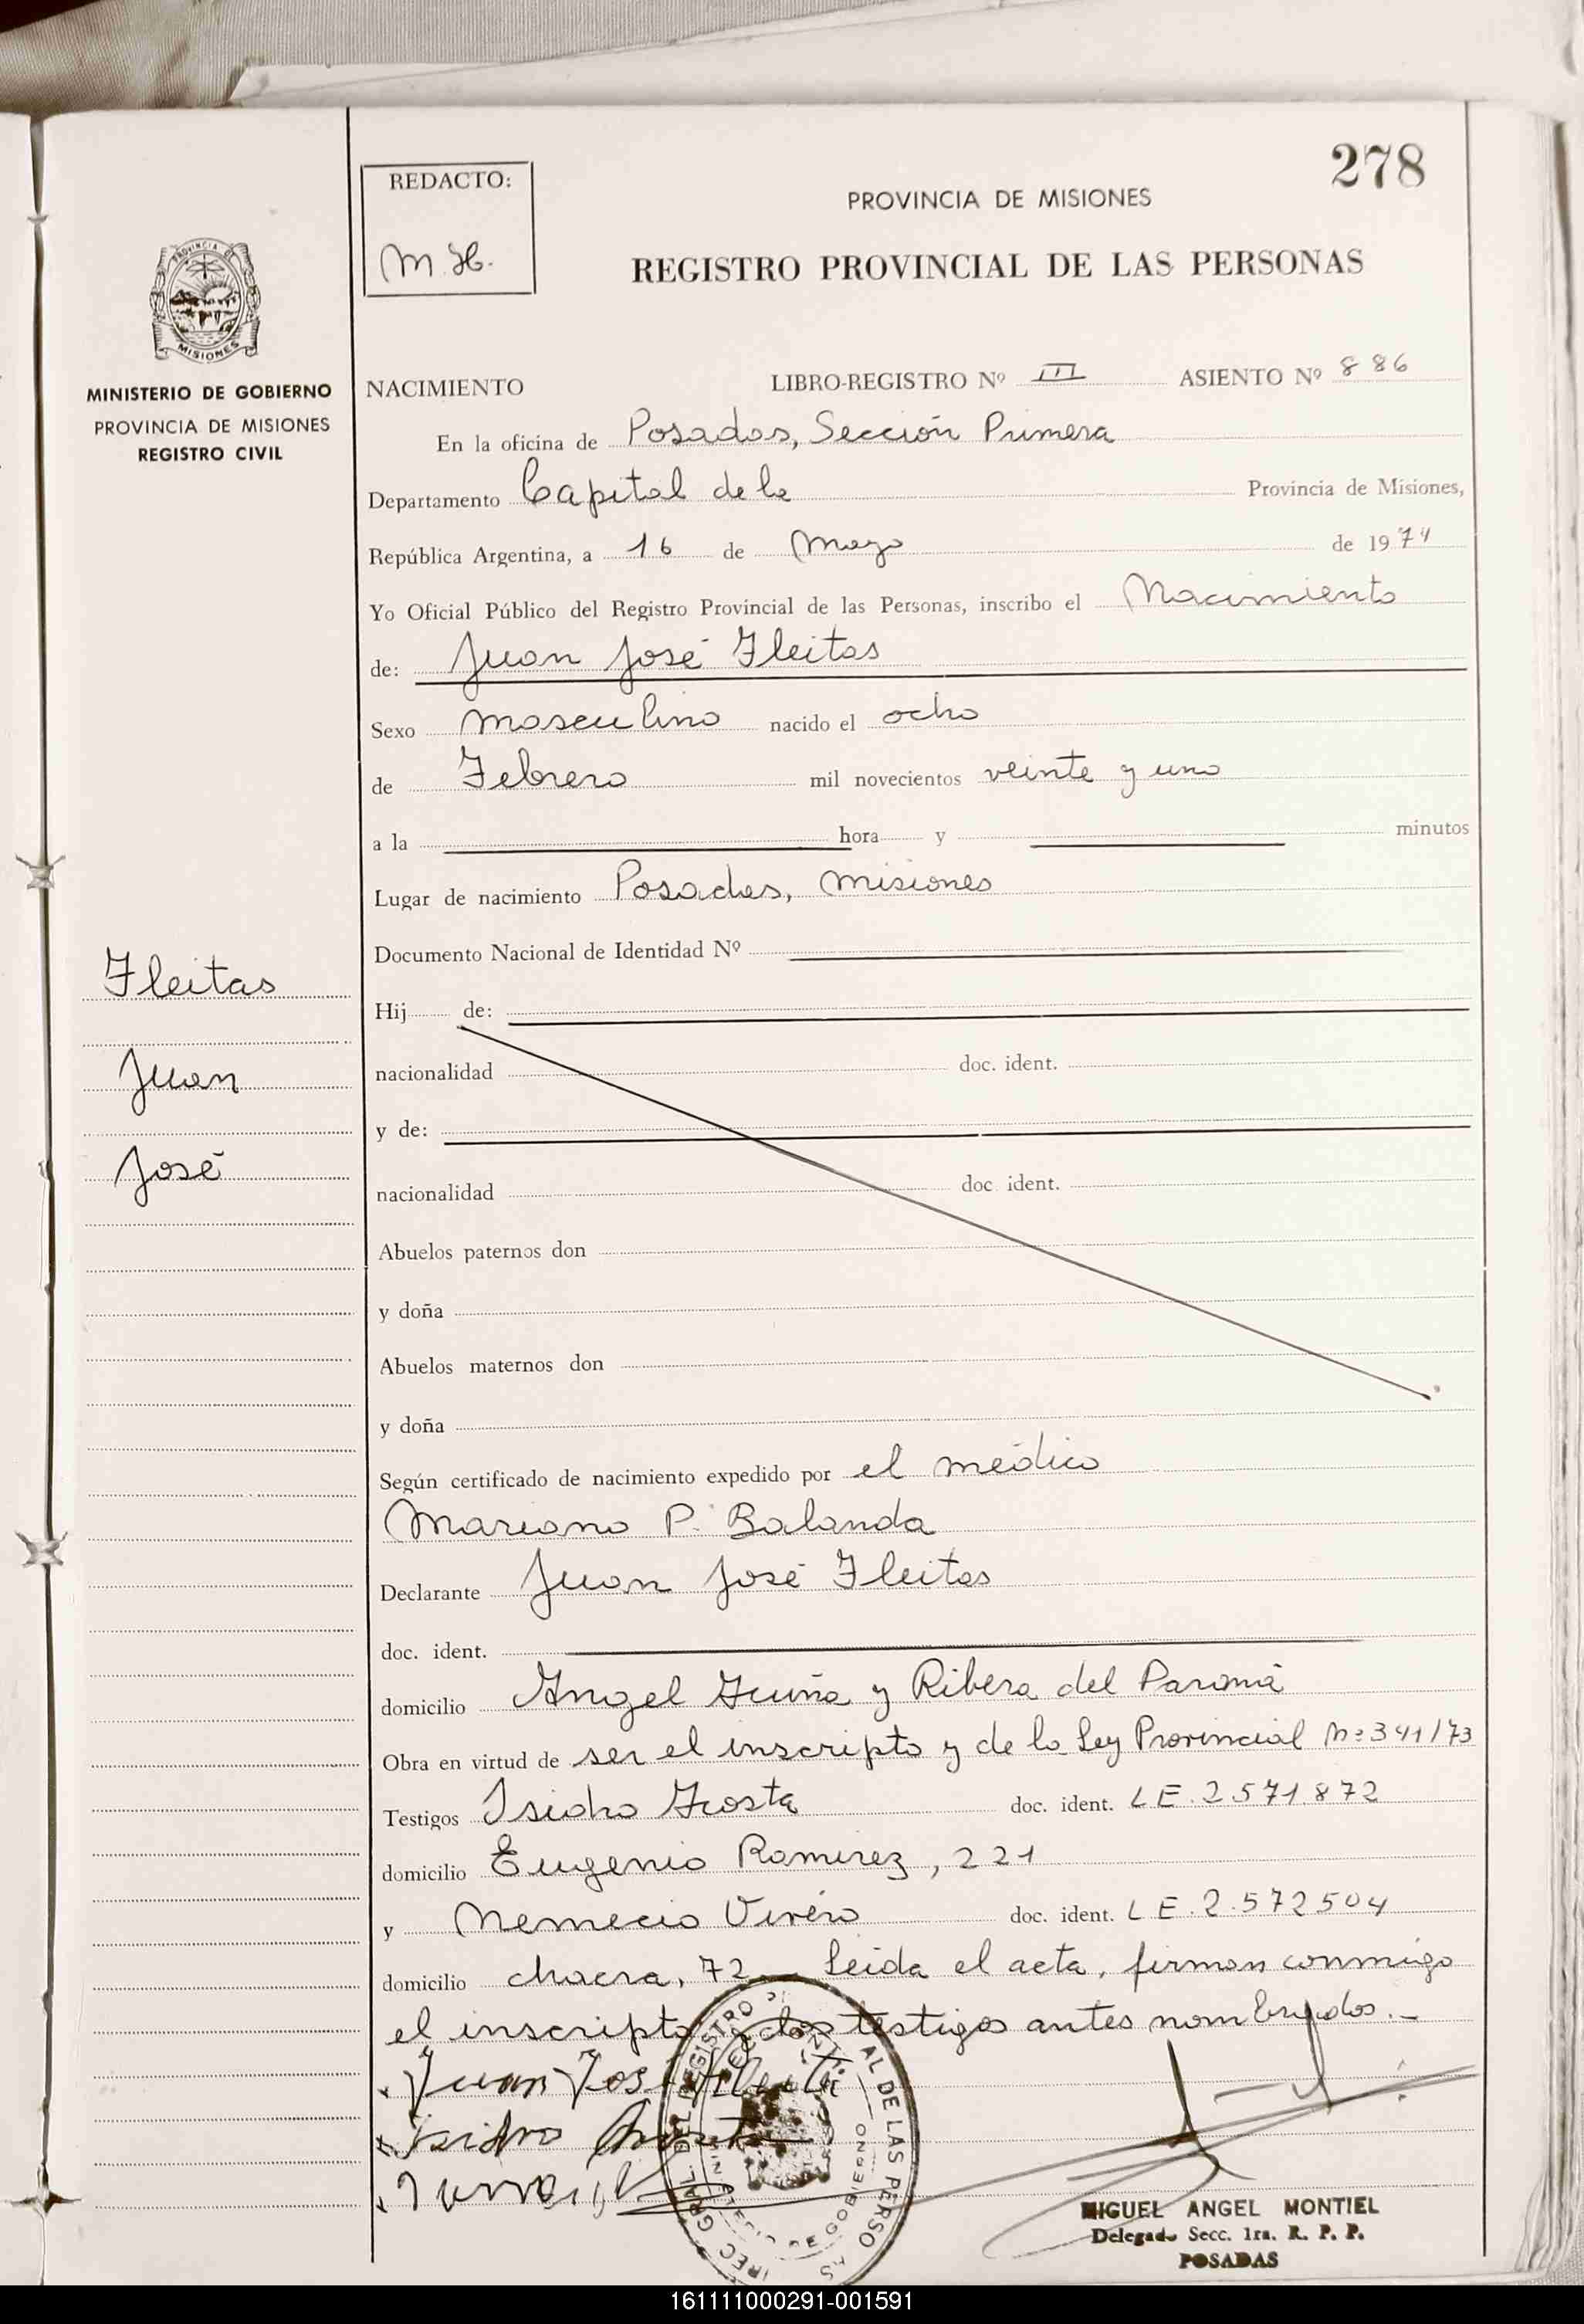 278
REDACTO:
M.H.
PROVINCIA DE MISIONES
REGISTRO PROVINCIAL DE LAS PERSONAS
PROVINCIA
MISIONES
MINISTERIO DE GOBIERNO
PROVINCIA DE MISIONES
REGISTRO CIVIL
NACIMIENTO LIBRO-REGISTRO Nº III ASIENTO Nº 886
En la oficina de Posadas, Sección Primera
Departamento Capital de la Provincia de Misiones,
República Argentina, a 16 de Mayo de 1974
Yo Oficial Público del Registro Provincial de las Personas, inscribo el Nacimiento
de: Juan José Fleitas
Sexo masculino nacido el ocho
de Febrero mil novecientos veinte y uno
a la hora y minutos
Lugar de nacimiento Posadas, Misiones
Documento Nacional de Identidad Nº
Fleitas
Juan
José
Hij de:
nacionalidad doc. ident.
y de:
nacionalidad doc. ident.
Abuelos paternos don
y doña
Abuelos maternos don
y doña
Según certificado de nacimiento expedido por el médico
Mariano P. Balanda
Declarante Juan José Fleitas
doc. ident.
domicilio Angel Acuña y Ribera del Paraná
Obra en virtud de ser el inscripto y de la Ley Provincial Nº 341/73
Testigos Isidro Acosta doc. ident. LE.2571.872
domicilio Eugenio Ramirez, 221
y Nemecio Vivero doc. ident. LE.2.572504
domicilio chacra, 72 Leida el acta, firman conmigo
el inscripto y los testigos antes nombrados.-
Juan José Fleita
Isidro Acosta
MIGUEL ANGEL MONTIEL
Delegado Secc. 1ra. R. P. P.
POSADAS
161111000291-001591